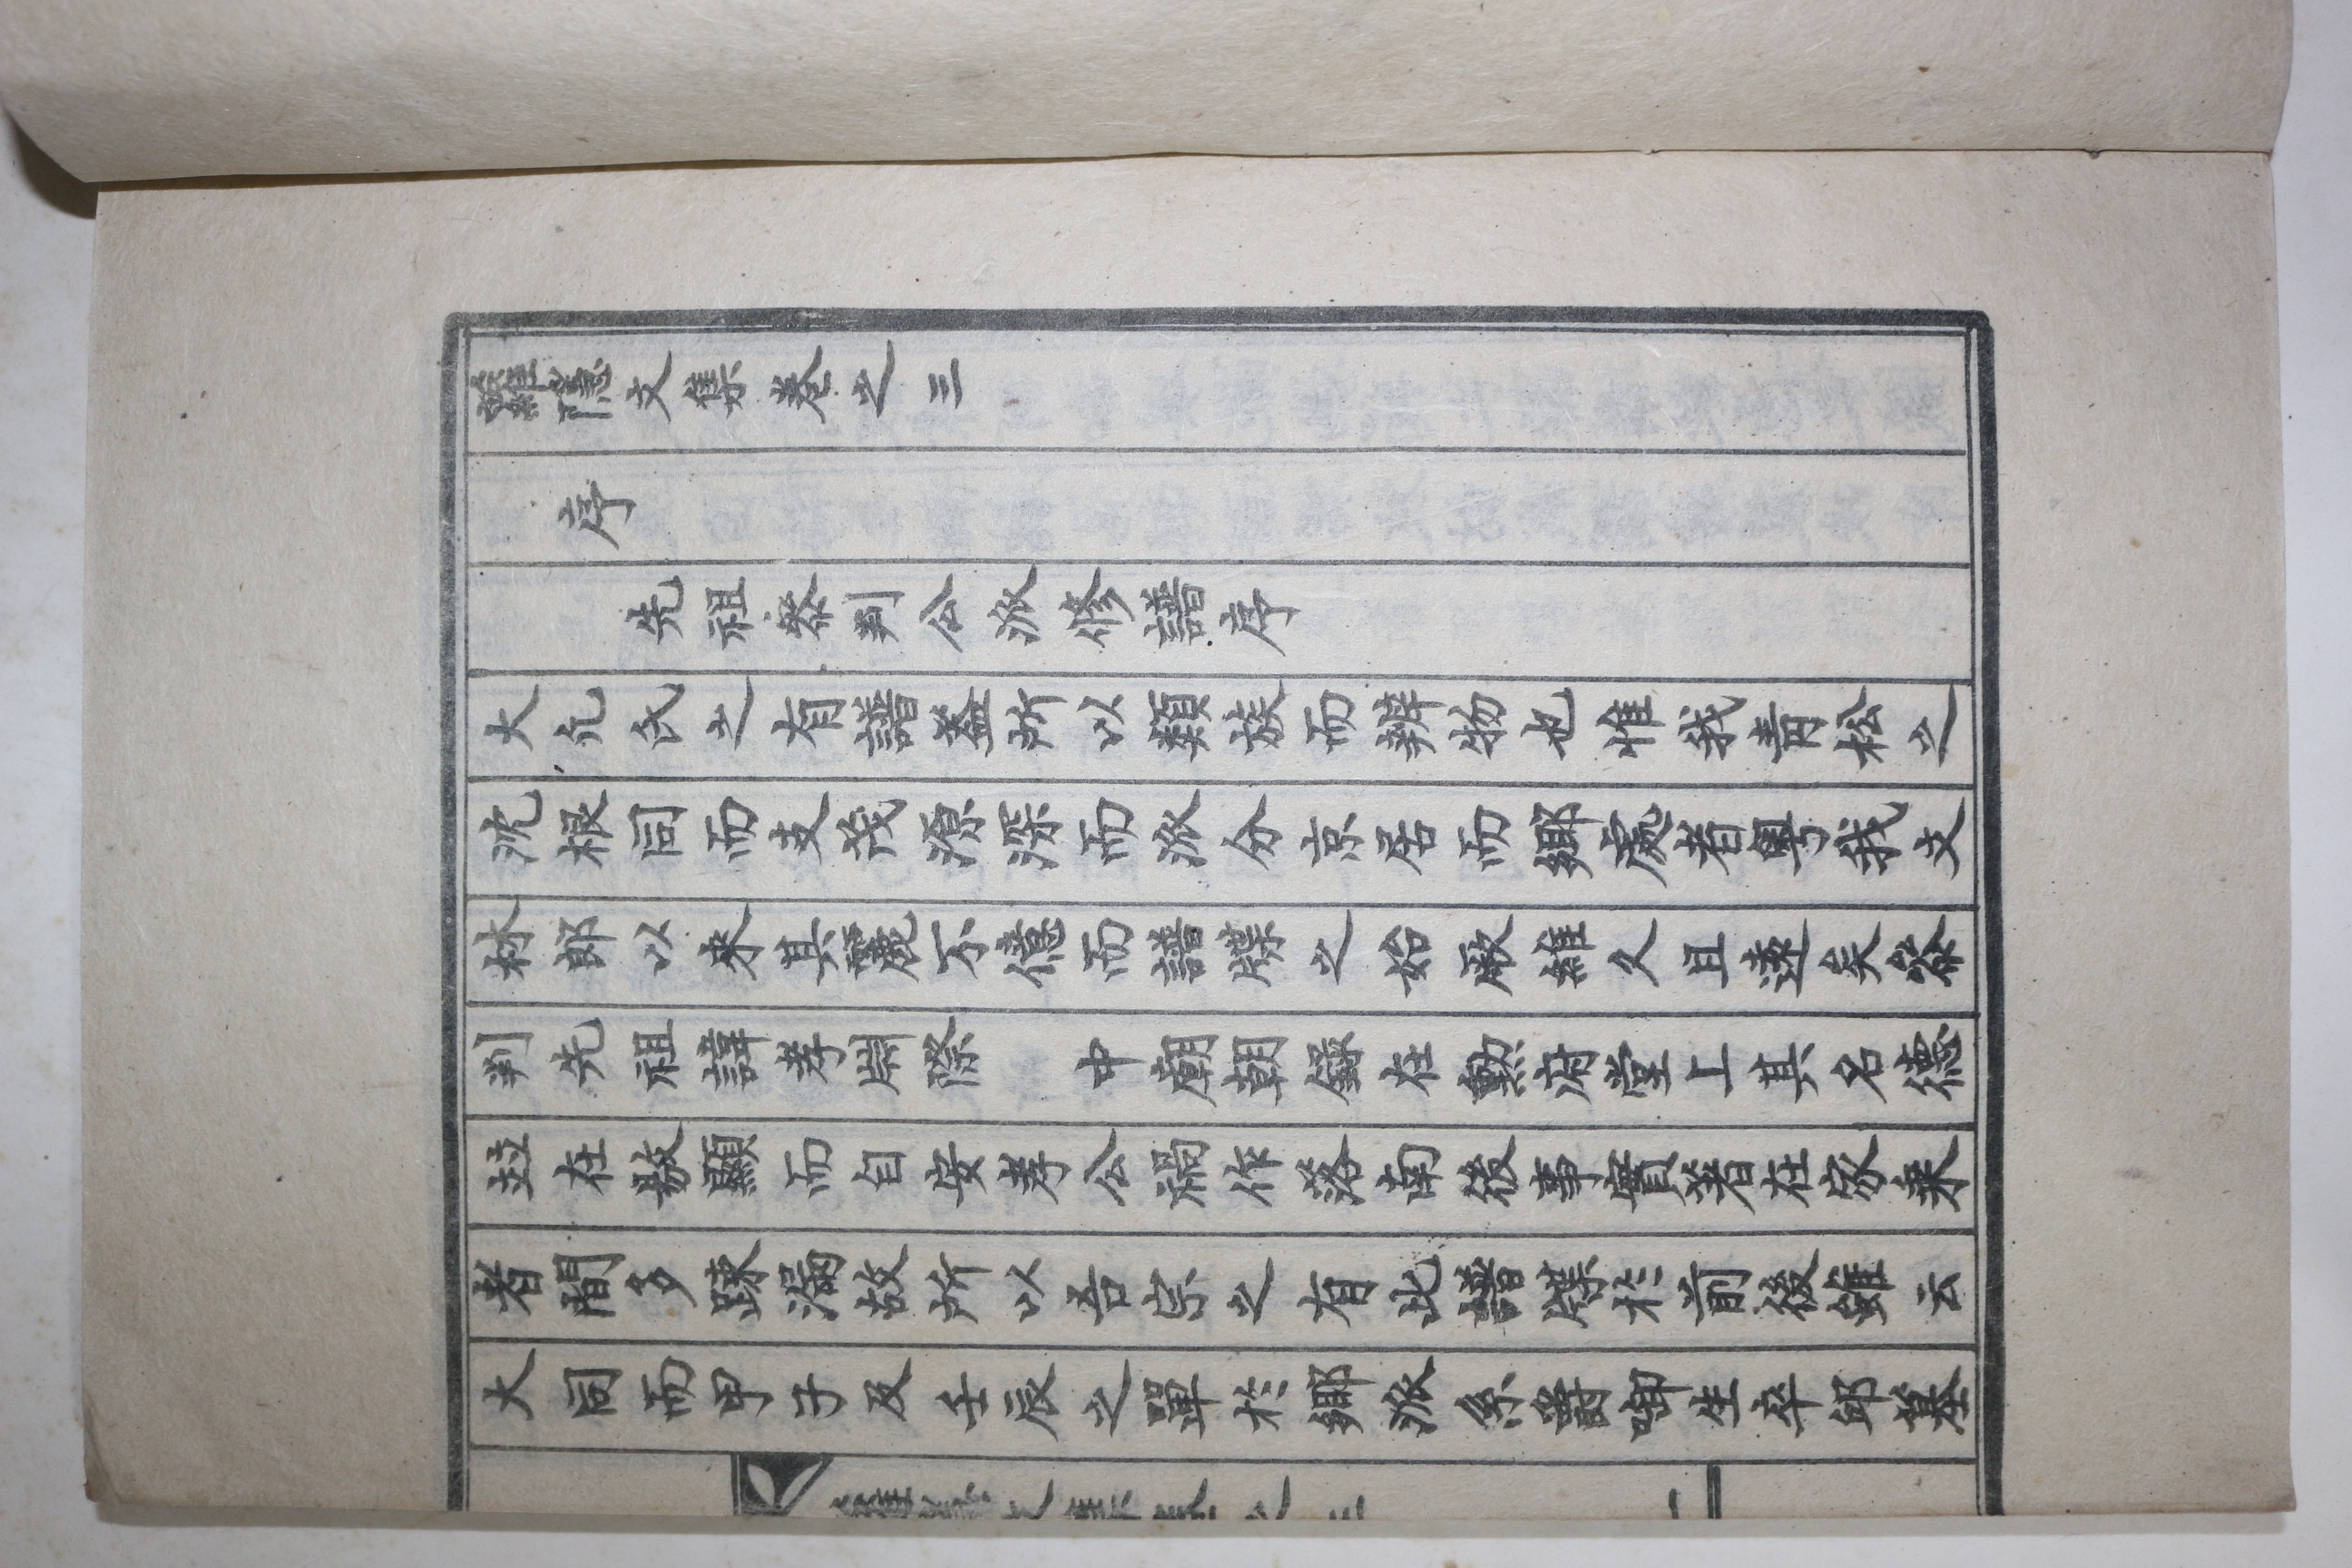 蘿隱文集卷之三
序
先祖參判公派修譜序
大凡氏之有譜盖所以類族而辨物也惟我靑松之
沈根同而支茂源深而派分京居而鄕處者粤我文
林郞以來其麗不億而譜牒之始厥維久且遠矣叅
判先祖諱孝開際 中廟朝錄在勳府堂上其名德
並在敭顯而自安孝公禍作落南後事實著在家乘
者間多踈漏故所以吾宗之有此譜牒於前後雖云
大同而甲子及壬辰之單於鄕派系爵啣生卒邱墓
蘿隱文集卷之三 一